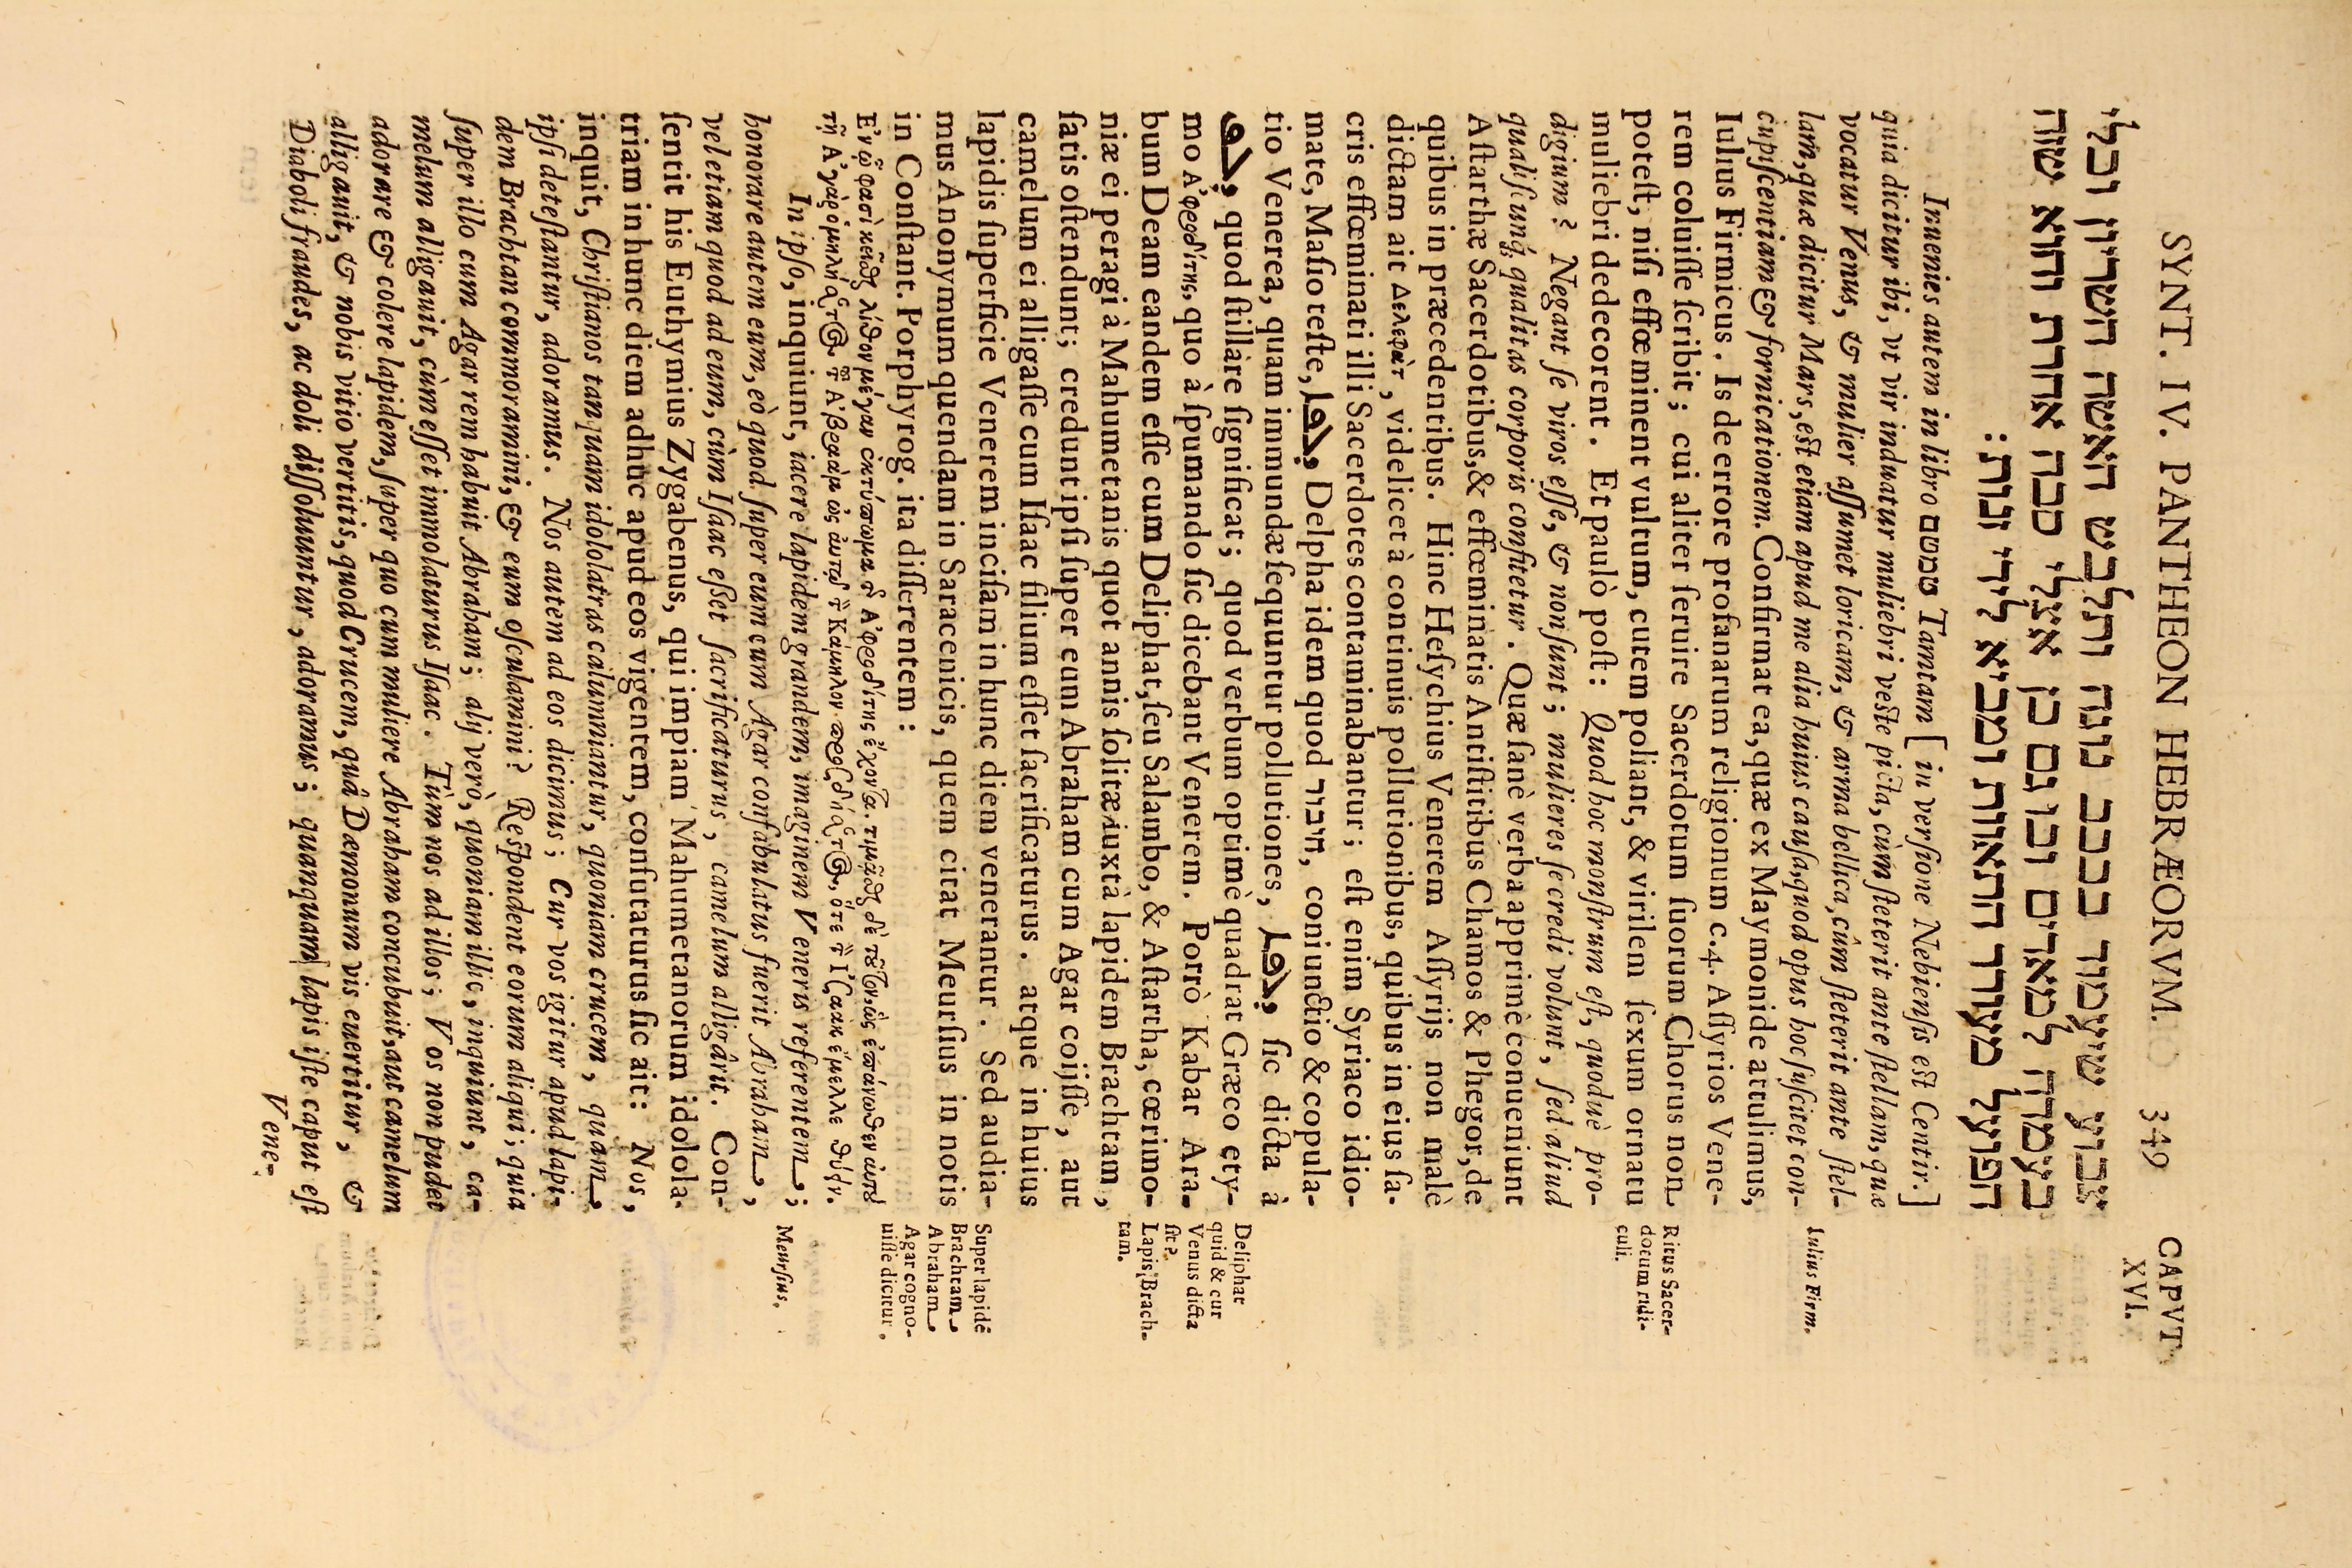 SYNT. IV. PANTHEON HEBRÆORVM. 349
CAPVT
XVI.
צבוע שיעמוד בככב נוגה ותלבש האשה השריון וכלי
בעמדה למארים וכו גם כן אצלי סבה אחרת והוא שזה
הפועל מעורר התאוות ומביא לידי זנות:
Inuenies autem in libro טמטם Tamtam [in versione Nebiensis est Centir.]
quia dicitur ibi, vt vir induatur muliebri veste picta, cùm steterit ante stellam, quæ
vocatur Venus, & mulier assumet loricam, & arma bellica, cûm steterit ante stel-
lam, quæ dicitur Mars, est etiam apud me alia huius causa, quod opus hoc suscitet con-
cupiscentiam & fornicationem. Confirmat ea, quæ ex Maymonide attulimus,
Iulius Firmicus. Is de errore profanarum religionum c. 4. Assyrios Vene-
rem coluisse scribit; cui aliter seruire Sacerdotum suorum Chorus non
potest, nisi effœminent vultum, cutem poliant, & virilem sexum ornatu
muliebri dedecorent. Et paulò post: Quod hoc monstrum est, quoduè pro-
digium? Negant se viros esse, & non sunt; mulieres se credi volunt, sed aliud
qualiscunq; qualitas corporis confitetur. Quæ sanè verba apprimè conueniunt
Astarthæ Sacerdotibus, & effœminatis Antistitibus Chamos & Phegor, de
quibus in præcedentibus. Hinc Hesychius Venerem Assyrijs non malè
dictam ait Δελεφὰτ, videlicet à continuis pollutionibus, quibus in eius sa-
cris effœminati illi Sacerdotes contaminabantur; est enim Syriaco idio-
mate, Masio teste, ܕܠܦܐ, Delpha idem quod חיבור, coniunctio & copula-
tio Venerea, quam immundæ sequuntur pollutiones, ܕܠܦܐ, sic dicta à
ܕܠܦ, quod stillàre significat; quod verbum optimè quadrat Græco ety-
mo Ἀφροδίτης, quo à spumando sic dicebant Venerem. Porrò Kabar Ara-
bum Deam eandem esse cum Deliphat, seu Salambo, & Astartha, cœrimo-
niæ ei peragi à Mahumetanis quot annis solitæ iuxtà lapidem Brachtam,
satis ostendunt; credunt ipsi super eum Abraham cum Agar coijsse, aut
camelum ei alligasse cum Isaac filium esset sacrificaturus. atque in huius
lapidis superficie Venerem incisam in hunc diem venerantur. Sed audia-
mus Anonymum quendam in Saracenicis, quem citat Meursius in notis
in Constant. Porphyrog. ita disserentem:
Ἐν ᾧ φασὶ κεῖσθαι λίθον μέγαν ἐκτύπωμα τῆς Ἀφροδίτης ἔχοντα. τιμᾶσθαι δὲ τοῦτον, ὡς ἐπάνωθεν αὐτοῦ
τῇ Ἄγαρ ὁμιλήσαντος τοῦ Ἀβραὰμ ὡς αὐτῷ τὴν Κάμηλον προσδήσαντος, ὅτε τὸν Ἰσαὰκ ἔμελλε θύειν.
In ipso, inquiunt, iacere lapidem grandem, imaginem Veneris referentem;
honorare autem eum, eò quod super eum cum Agar confabulatus fuerit Abraham,
vel etiam quod ad eum, cùm Isaac esset sacrificaturus, camelum alligârit. Con-
sentit his Euthymius Zygabenus, qui impiam Mahumetanorum idolola-
triam in hunc diem adhuc apud eos vigentem, confutaturus sic ait: Nos,
inquit, Christianos tanquam idololatras calumniantur, quoniam crucem, quam
ipsi detestantur, adoramus. Nos autem ad eos dicimus; Cur vos igitur apud lapi-
dem Brachtan commoramini, & eum osculamini? Respondent eorum aliqui; quia
super illo cum Agar rem habuit Abraham; alij verò, quoniam illic, inquiunt, ca-
melum alligauit, cùm esset immolaturus Isaac. Tùm nos ad illos; Vos non pudet
adorare & colere lapidem, super quo cum muliere Abraham concubuit, aut camelum
alligauit, & nobis vitio vertitis, quod Crucem, quâ Dæmonum vis euertitur, &
Diaboli fraudes, ac doli dissoluuntur, adoramus; quanquam lapis iste caput est
Vene-
Iulius Firm.
Ritus Sacer-
dotum ridi-
culi.
Deliphat
quid & cur
Venus dicta
sit?
Lapis Brach-
tam.
Super lapidē
Brachtam
Abraham
Agar cogno-
uisse dicitur.
Meursius.